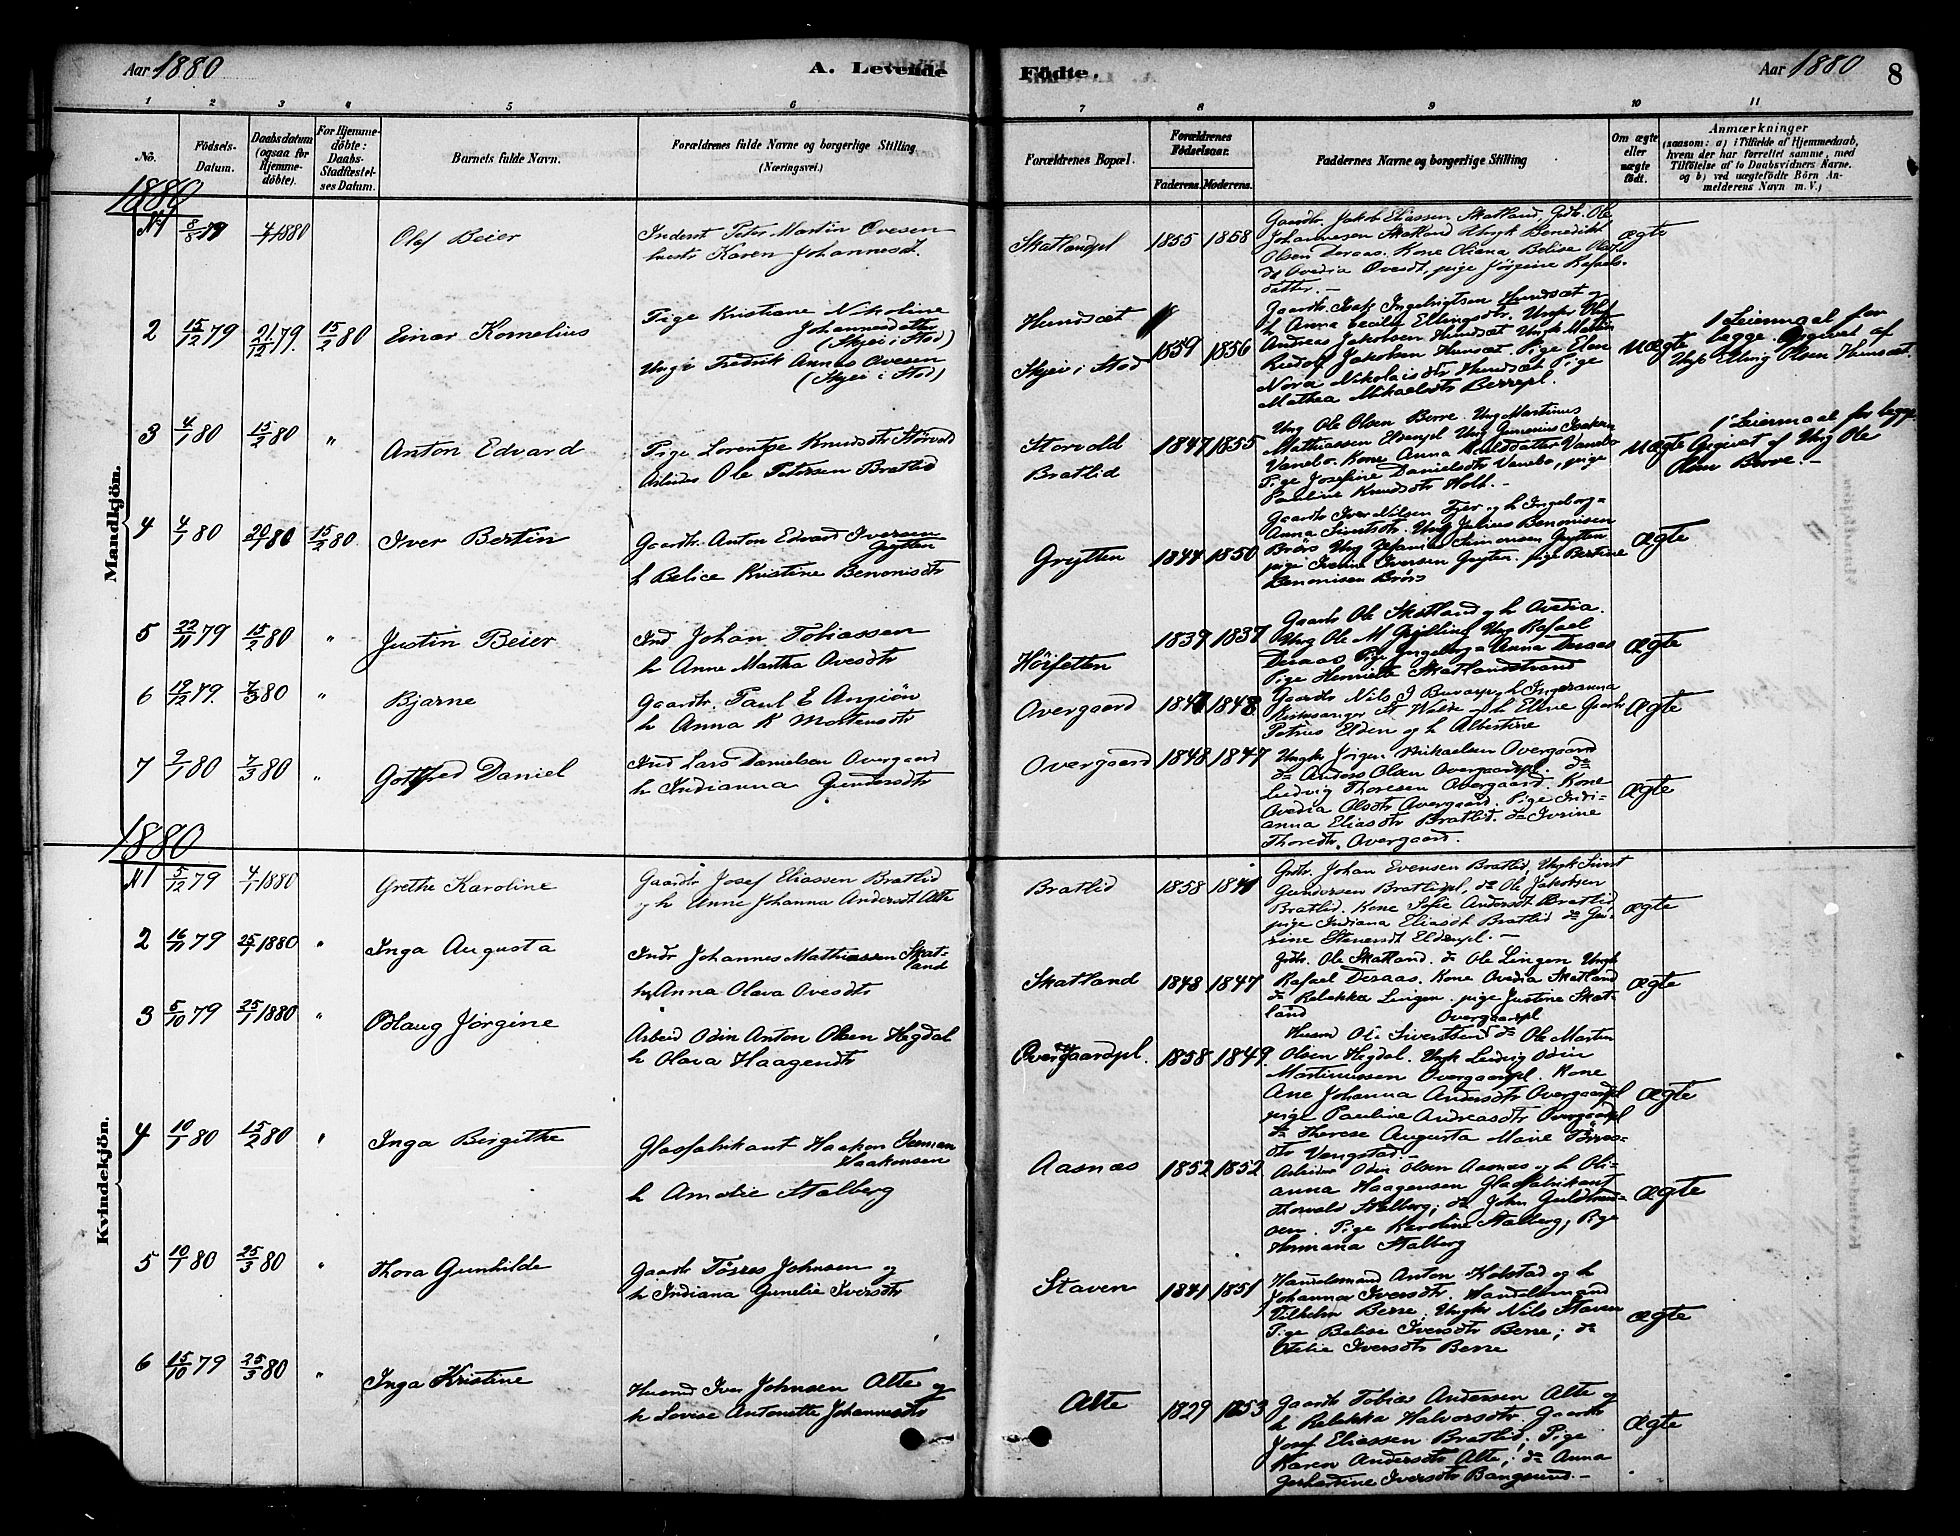 Aar 1880
A. Levende
Födte.
Aar 1880
8
1 2 3 4 5 6 7 8 9 10 11
No.
Födsels-
Datum.
Daabsdatum
(ogsaa for
Hjemme-
döbte).
For Hjemme-
döbte:
Daabs-
Stadfæstel-
ses Datum.
Barnets fulde Navn.
Forældrenes fulde Navne og borgerlige Stilling
(Næringsvei.)
Forældrenes Bopæl.
Forældrenes
Födselsaar.
Faderens. Moderens.
Faddernes Navne og borgerlige Stilling
Om ægte
eller
uægte
födt.
Anmærkninger
(saasom: a) i Tilfælde af Hjemmedaab,
hvem der har forrettet samme, med
Tilföielse af to Daabsvidners Navne.
og b) ved uægtefödte Börn An-
melderens Navn m.V.)
Mandkjön.
1880
N1 8/8 79 4/1 1880 Olaf Beier
Inderst Peter Martin Ovesen
Karen Johannesd.
Skatlandspl 1855 1858
Gaardbr Jakob Eliassen Skatland, Gdb. Ole
Johannesen Skatland Ungk Benedikt
Olsen Deraas. Kone Oliana Belise Olsd.
do Ovedia Ovesdt, pige Jörgine Rafaels-
datter.-
ægte
2 15/12 79 21/12 79. 15/2 80 Einar Kornelius
Pige Kristiane Nikoline
Johannesdatter
(Skjei i Stod)
Ungk Fredrik Annas Ovesen
(Skjei i Stod)
Hundsæt
Skjei i Stod 1859 1856
Gaardbr Isak Ingebrigtsen Hundsæt og
h Anna Cecilie Ellingsdtr. Ungkr Olof
Andreas Jakobsen Hundsæt Ungk Martin
Redolf Jakobsen Hunsæt. Pige Elen
Nora Nikolaisdtr Hundsæt Pige
Mathea Mikaelsdtr Berrepl.
uægte
1' Leiermaal for
begge. Opgivet af
Ungk Elling Olsen Hunsæt.
3 4/1 80 15/2 80 " Anton Edvard
Pige Lorentse Knudsdtr Störvold
Arbeider Ole Petersen Bratlid
Storvold
Bratlid 1847 1855
Ung Ole Olsen Berre. Ung Martinus
Mathiassen Eldenpl Ung Gunerius Isaksen
Vanebo. Kone Anna Pauldatter Vanebo
Pige Josefine Danielsdtr Vanebo, pige
Pauline Knudsdtr Holt.-
uægte
1' Leiermaal for begge
Opgivet af Ung Ole
Olsen Berre.-
4 4/1 80 20/1 80 15/2 80. Iver Bertin
Gaardbr. Anton Edvard Iversen
Grytten
h Belice Kristine Benonisdtr
Grytten 1844 1850
Gaardbr Iver Nilsen Fjer og h Ingeborg
Anna Sivertsdtr. Ung Julius Benonisen
Brörs Ung Johannes Simonsen Grytten
pige Iverine Iversen Grytten. pige Bertine
Benonisen Brörs
Ægte
5 22/11 79 15/2 80 " Justin Beier
Ind Johan Tobiassen
h Anne Martha Ovesdtr
Hörfetten 1839 1837
Gaardb Ole Skatland og h Ovedia.
Ung Ole M Grylling Ung Rafael
Deraas Pige Ingeborg Anna Deraas
Pige Henriette Skatlandstrand
Ægte
6 19/12 79. 7/3 80 " Bjarne
Gaardbr. Paul E Anziön
h Anna K Mortensdtr
Overgaard 1847 1848
Gaardb Nils J Buvarp og h Ingeranna
Kirkesanger T Walde og h Eline Gaardb
Petrus Elden og h Albertine
Ægte
7 2/1 80 7/3 80 " Gottfred Daniel
Ind Lars Danielsen Overgaard
h Indianna Gundersdtr
Overgaard 1848 1847
Ungk Jörgen Mikaelsen Overgaard
do Anders Olsen Overgaardpl. do
Ludvig Thoresen Overgaard. Kone
Ovedia Olsdtr Overgaard. Pige Indi-
anna Eliasdtr Bratlid. do Ivrine
Thoredtr. Overgaard.
Ægte
Kvindekjön.
1880
N1 5/12 79 4/1 1880 Grethe Karoline
Gaardbr Josef Eliassen Bratlid
og h Anne Johanna Andersdt Alte
Bratlid 1858 1841
Gdbr. Johan Evensen Bratlid, Ungk Sivert
Gundersen Bratlidpl, do Ole Jakobsen
Bratlid. Kone Sofie Andersdt Bratlid
pige Indiana Eliasdt Bratlid do Ge-
rine Stenersdt Eldenpl.-
Ægte
2 16/11 79 25/1 1880 " Inga Augusta
Indr Johannes Mathiassen Skat-
land
h Anna Olava Ovesdtr
Skatland 1848 1847
Gdbr. Ole Skatland. do Ole Lingen Ungk
Rafael Deraas. Kone Ovedia Skatland
do Rebekka Lingen. pige Justine Skat-
land
Ægte
3 5/10 79 25/1 1880 " Odlaug Jörgine
Arbeid Odin Anton Olsen Hegdal
h Olava Haagendtr
Overgaardpl. 1858 1849.
Overgaardpl
Husmd Ole Sivertsen do Ole Martin
Olsen Hegdal. Ungk Ludvig Odin
Martinussen Overgaarpl. Kone
Ane Johanna Andersdtr Overgaardpl
pige Pauline Andreasdtr Overgaardpl
do Therese Augusta Marie Törres-
dtr Vangstad.-
Ægte
4 10/1 80 15/2 80 " Inga Birgithe
Glasfabrikant Haakon Herman
Haakonsen
h Amalie Stalberg
Aasnæs 1852 1852
Arbeider Odin Olsen Aasnæs og h Oli-
anna Haagensen Glasfabrikant
Thorvald Stalberg; do John Guldbrand-
sen. Pige Karoline Stalberg, Pige
Hermana Stalberg
Ægte
5 10/1 80 25/3 80 " Thora Gunhilde
Gaardb Törres Johnsen og
h Indiana Gunelie Iversdtr
Staven 1841 1851
Handelsmand Anton Kolstad og h
Johanna Iversdtr. Handelsmand
Vilhelm Berre. Ungkr Nils Staven
Pige Belise Iversdtr Berre; do
Otelie Iversdtr Berre
Ægte
6 15/10 79 25/3 80 " Inga Kristine
Husmd Iver Johnsen Alte og
h Lovise Antonette Johannesdtr
Alte 1829 1853
Gaardb Tobias Andersen Alte og
h Rebekka Halvorsdtr. Gaardb
Josef Eliassen Bratlid; Pige
Karen Andersdtr Alte; do Anna
Gerhardine Iversdtr Bangsund.-
Ægte